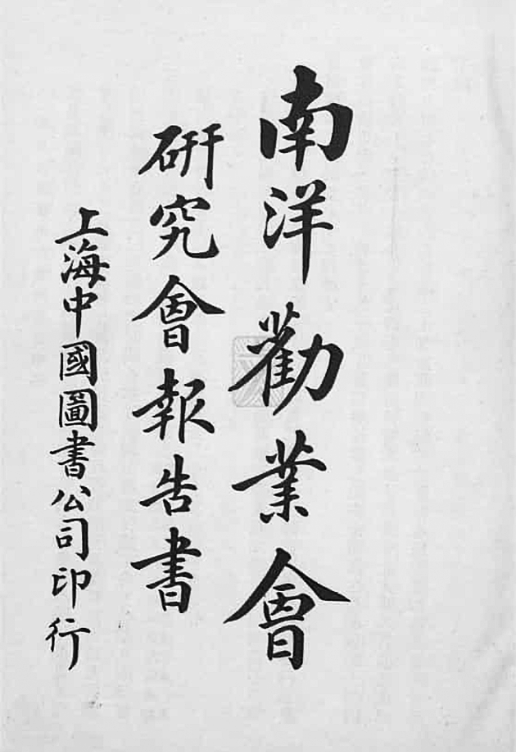 南洋勸業會
研究會報告書
上海中國圖書公司印行